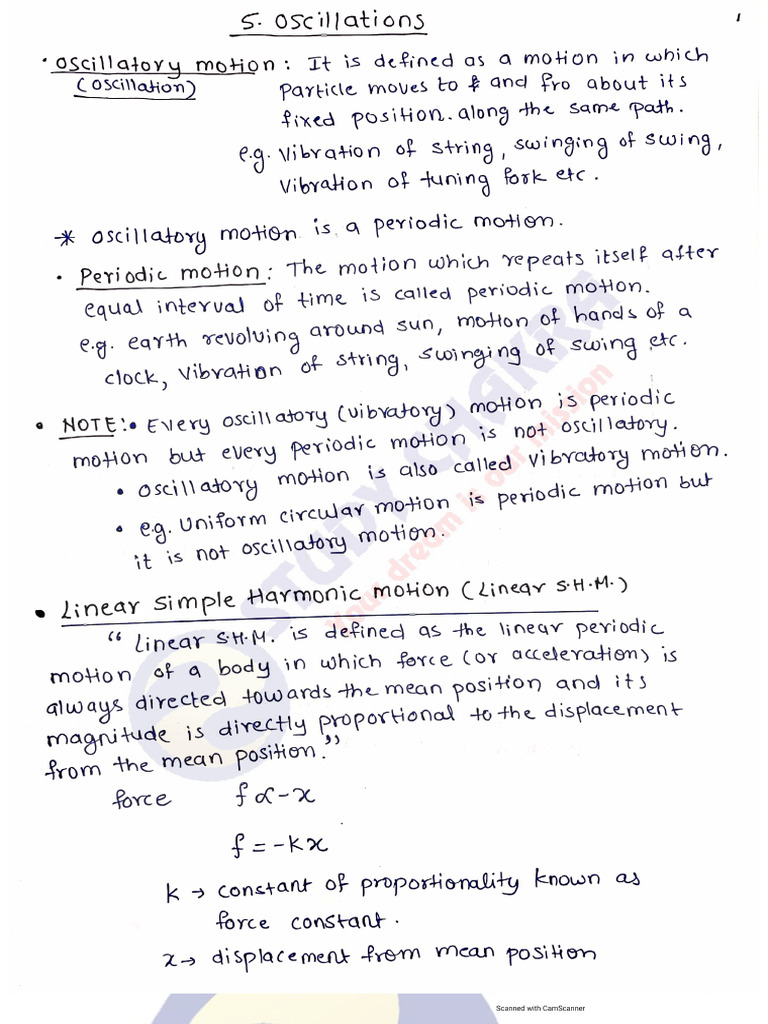 5. Oscillations
1
• Oscillatory motion: It is defined as a motion in which
(Oscillation) Particle moves to & and fro about its
fixed position. along the same path.
e.g. Vibration of string, swinging of swing,
Vibration of tuning fork etc.
* Oscillatory motion is a periodic motion.
• Periodic motion: The motion which repeats itself after
equal interval of time is called periodic motion.
e.g. earth revolving around sun, motion of hands of a
clock, Vibration of string, swinging of swing etc.
• NOTE:• Every oscillatory (vibratory) motion is periodic
motion but every periodic motion is not oscillatory.
• Oscillatory motion is also called vibratory motion.
• e.g. Uniform circular motion is periodic motion but
it is not oscillatory motion.
• Linear Simple Harmonic motion (Linear S.H.M.)
“ Linear S.H.M. is defined as the linear periodic
motion of a body in which force (or acceleration) is
always directed towards the mean position and its
magnitude is directly proportional to the displacement
from the mean position.”
force f ∝ -x
f = -kx
k → constant of proportionality known as
force constant.
x → displacement from mean position
STUDY CHAKRA
Your dream is our mission
Scanned with CamScanner